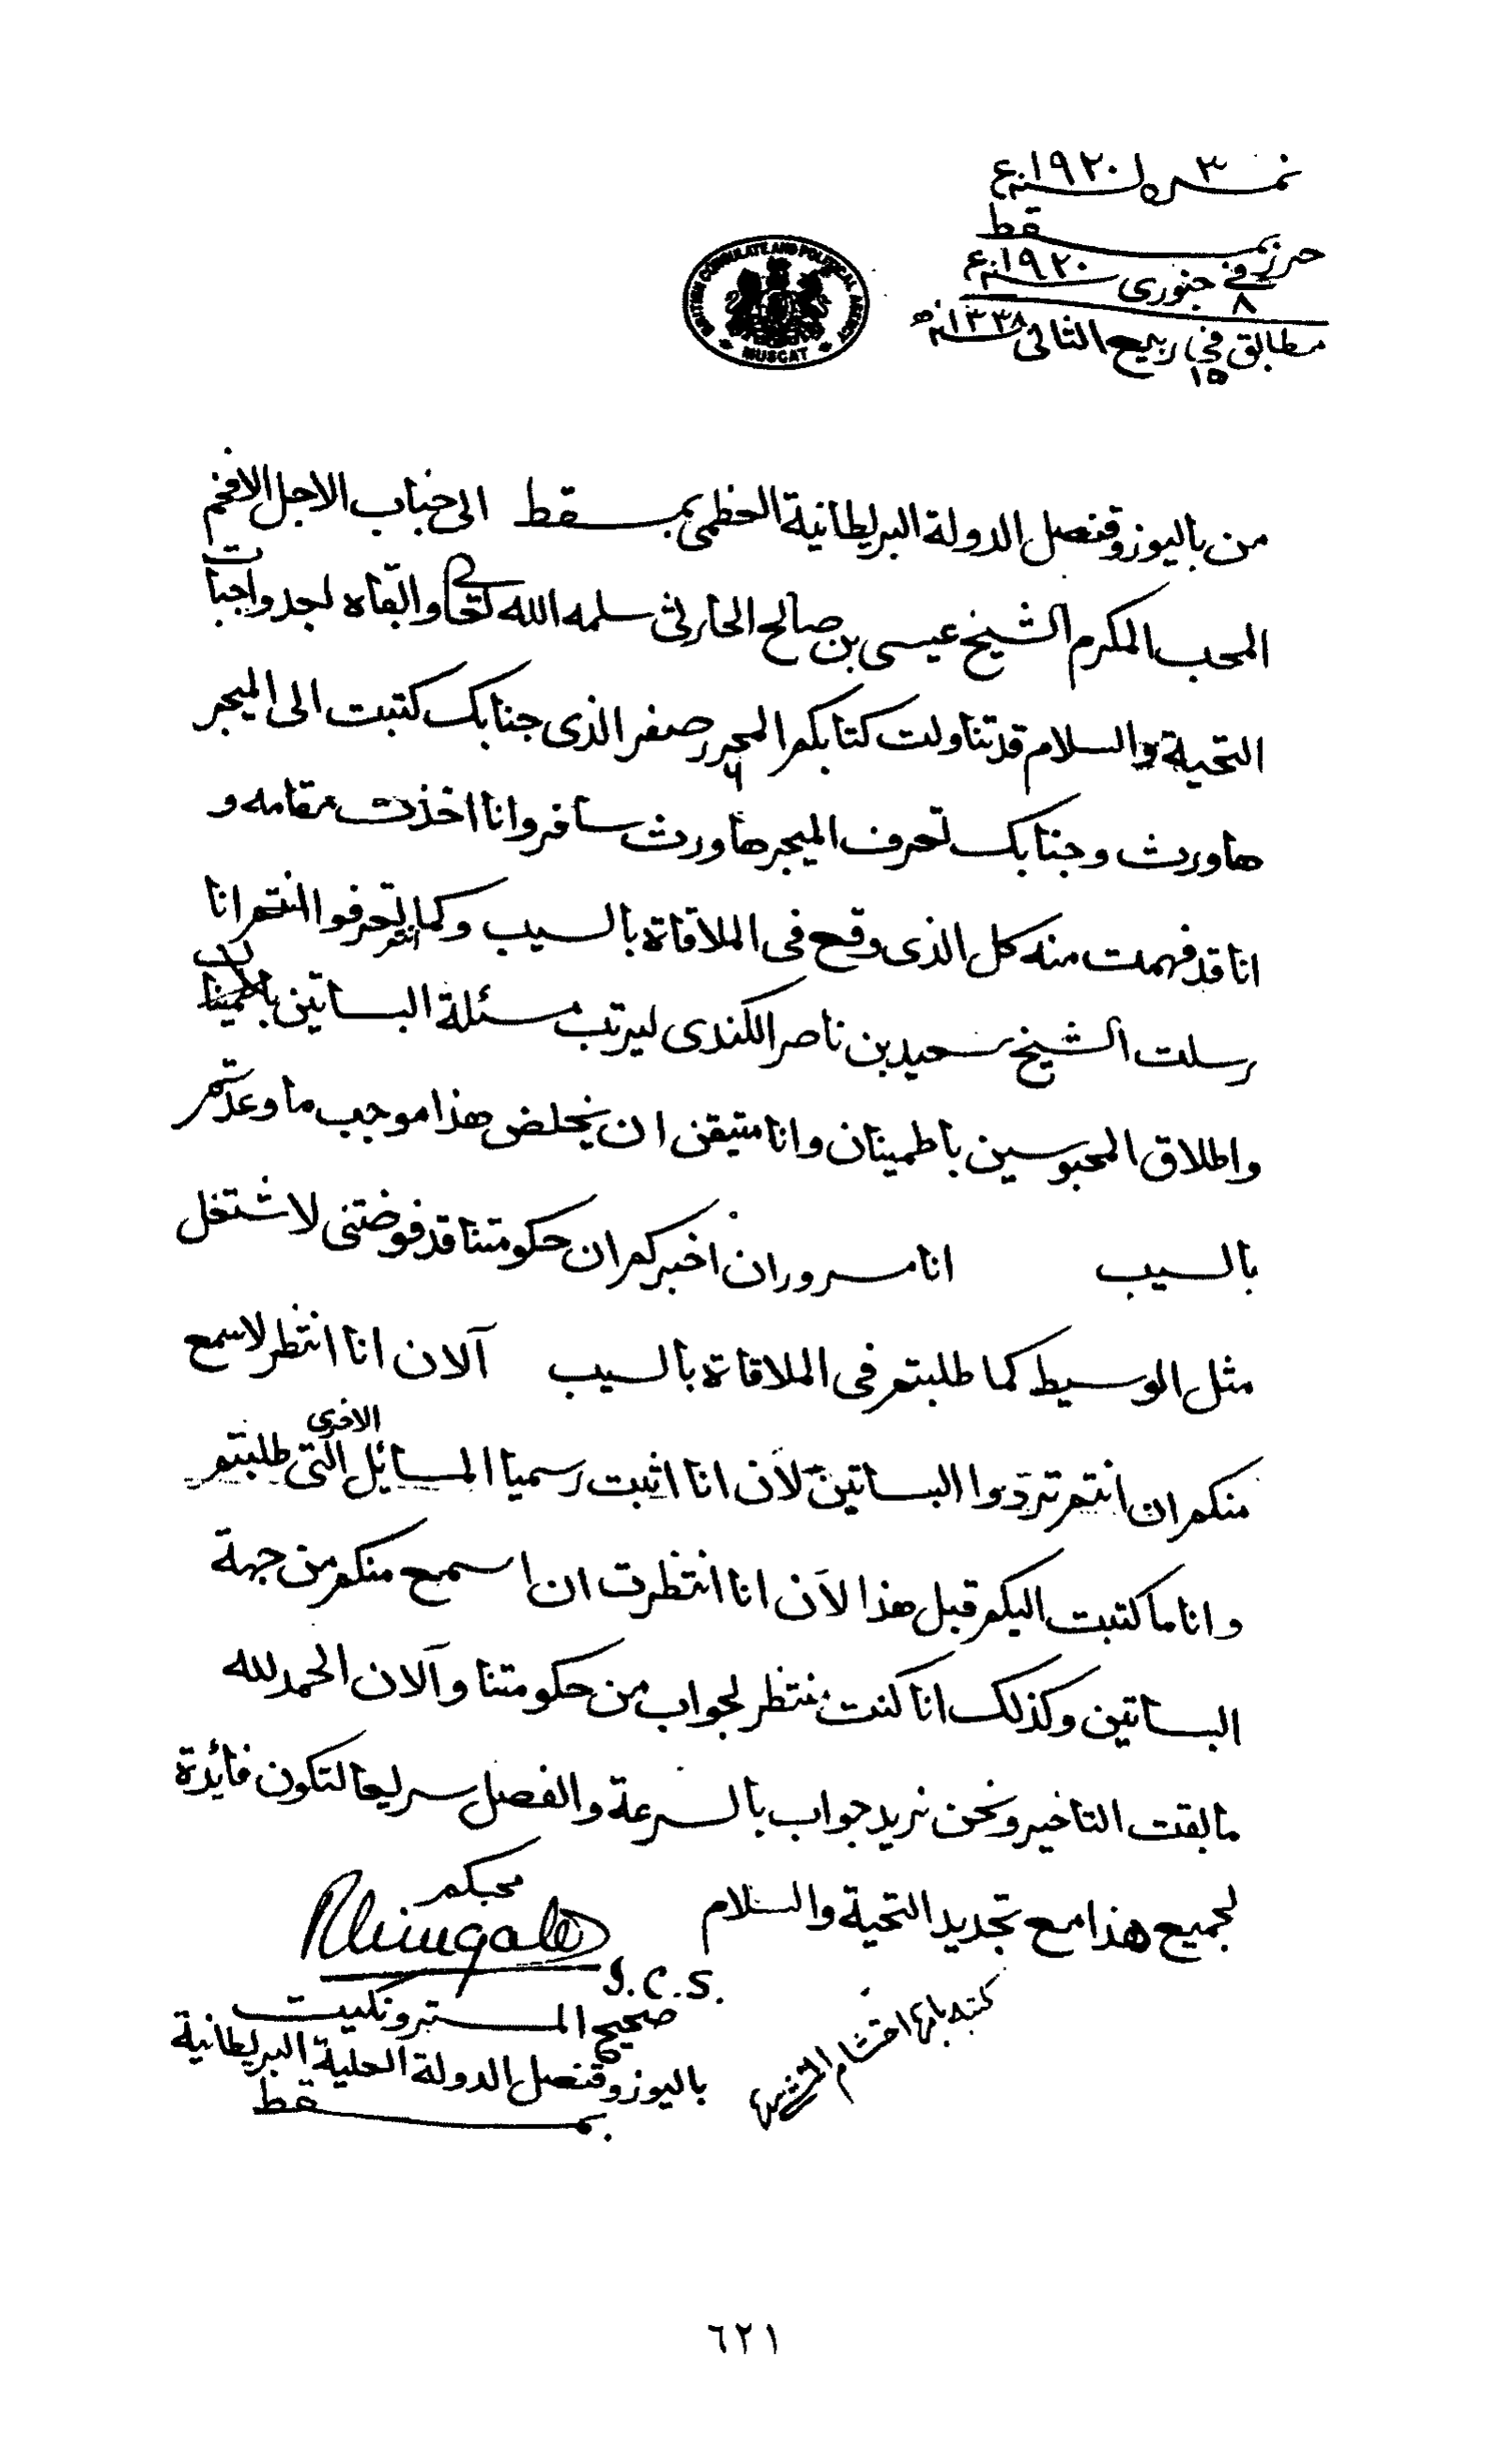 نمره ٣ لسنه ١٩٢٠ع
حرر بمسقط
في ٨ جنورى سنه ١٩٢٠ع
مطابق في ١٥ ربيع الثانى سنه ١٣٣٨ه
BRITISH CONSULATE AND POLITICAL AGENCY
MUSCAT
من باليوز وقنصل الدولة البريطانية العظمى بمسقط الى جناب الاجل الافخم
المحب المكرم الشيخ عيسى بن صالح الحارثى سلمه الله تعالى وابقاه لجد واجبات
التحية والسلام قد تناولت كتابكم المحرر ٦ صفر الذى جنابك كتبت الى الميجر
هاورث وجنابك تعرف الميجر هاورث سافر وانا اخذت مقامه و
انا قد فهمت منه كل الذى وقع فى الملاقاة بالسيب وكما انتم تعرفوا انا
رسلت الشيخ سعيد بن ناصر الكندى ليرتب مسئلة البساتين
واطلاق المحبوسين باطمينان وانا متيقن ان يخلص هذا موجب ما وعدتم
بالسيب انا مسرور ان اخبركم ان حكومتنا قد فوضتنى لاشتغل
مثل الوسيط كما طلبتم فى الملاقاة بالسيب آلان انا انتظر لاسمع
منكم ان انتم تردوا البساتين لآن انا اثبت رسميا المسائل الاخرى التى طلبتم
وانا ما كتبت اليكم قبل هذا لآن انا انتظرت ان اسمع منكم من جهة
البساتين وكذلك انا كنت منتظر لجواب من حكومتنا وآلان الحمد لله
ما بقت التاخير ونحن نريد جواب بالسرعة والفصل سريعا لتكون فائدة
لجميع هذا مع تجديد التحية والسلام
محبكم
I.C.S.
صحيح المستر ونكيت
باليوز وقنصل الدولة العلية البريطانية
بمسقط
كتبه
٦٢١